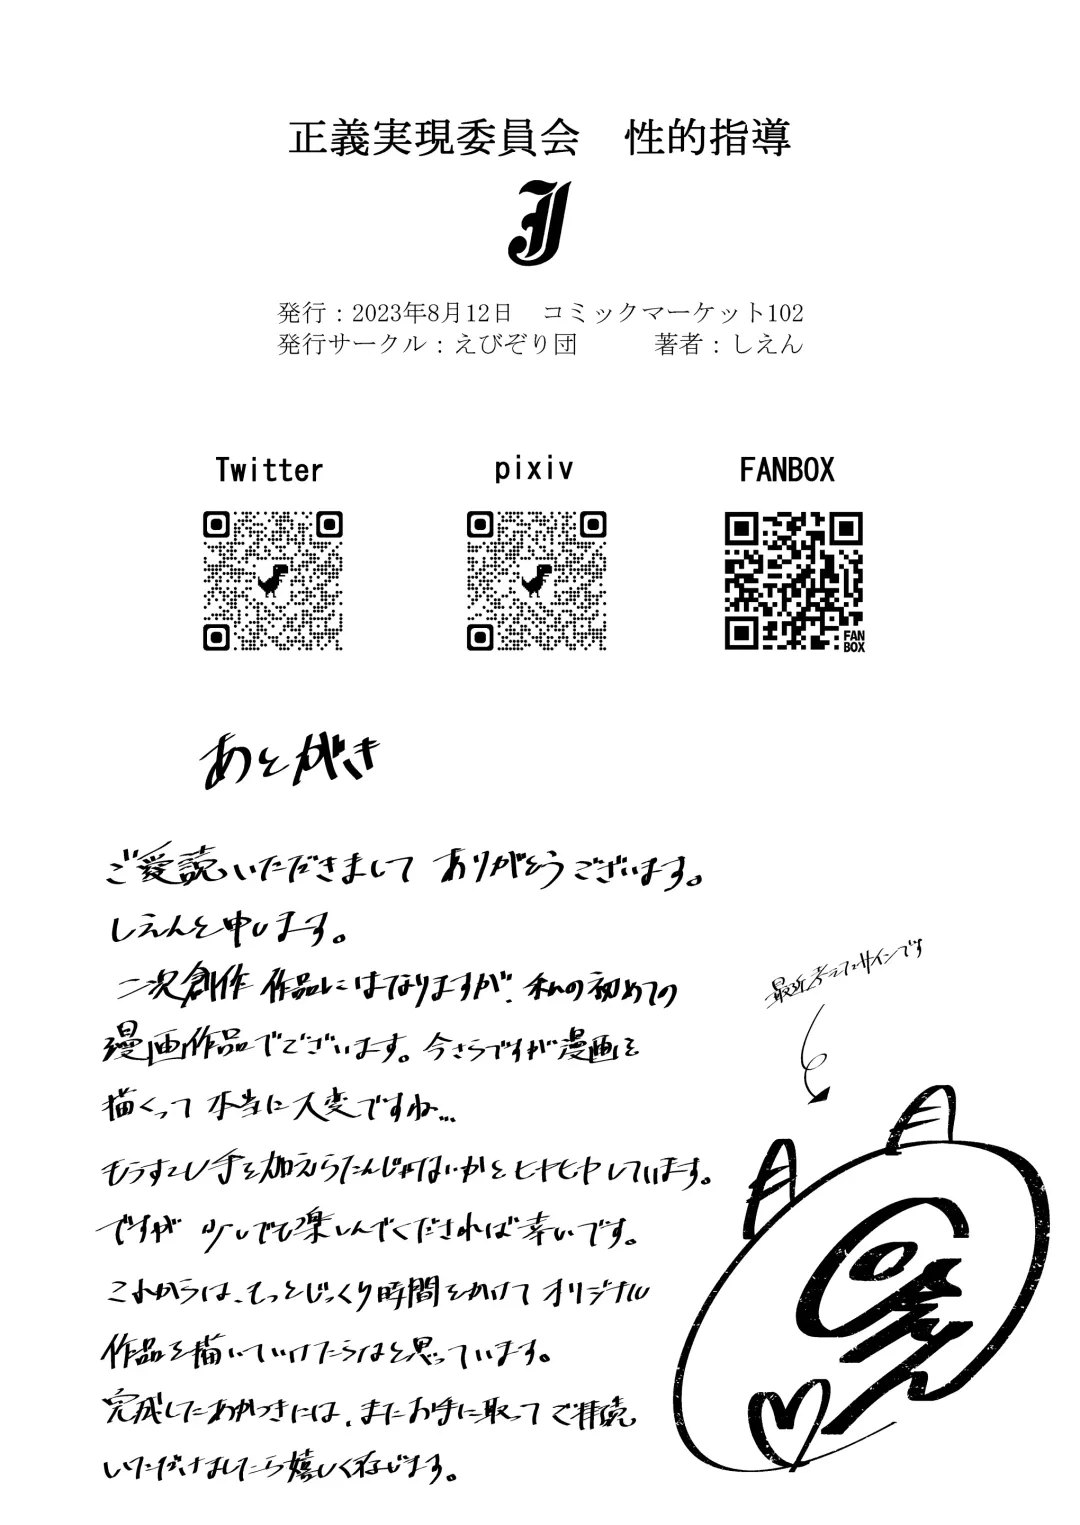 正義実現委員会　性的指導
J
発行：2023年8月12日　コミックマーケット102
発行サークル：えびぞり団　著者：しえん
Twitter
pixiv
FANBOX
FAN
BOX
あとがき
ご愛読いただきまして ありがとうございます。
しえんと申します。
二次創作 作品にはなりますが、私の初めての
漫画作品でございます。今さらですが漫画を
描くって 本当に大変ですね…
もうすこし手を加えられたんじゃないかとヒヤヒヤしています。
ですが 少しでも楽しんでくだされば幸いです。
これからは、もっとじっくり時間をかけて オリジナル
作品を描いていけたらなと思っています。
完成したあかつきには、またお手に取って ご拝読
いただけましたら嬉しく存じます。
最近考えたサインです